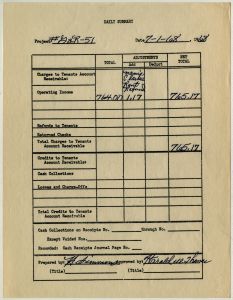 DAILY SUMMARY
Project Date 7-1-68
TOTAL ADJUSTMENTS NET TOTAL
Add Deduct
Charges to Tenants Account Receivable:
Operating Income 764.00 1.17 765.17
Refunds to Tenants
Returned Checks
Total Charges to Tenants Account Receivable 765.17
Credits to Tenants Account Receivable:
Cash Collections
Losses and Charge-Offs
Total Credits to Tenants Account Receivable
Cash Collections on Receipts No. through No.
Except Voided Nos.
Recorded: Cash Receipts Journal Page No.
Prepared by: Approved by: Harold
(Title) (Title)